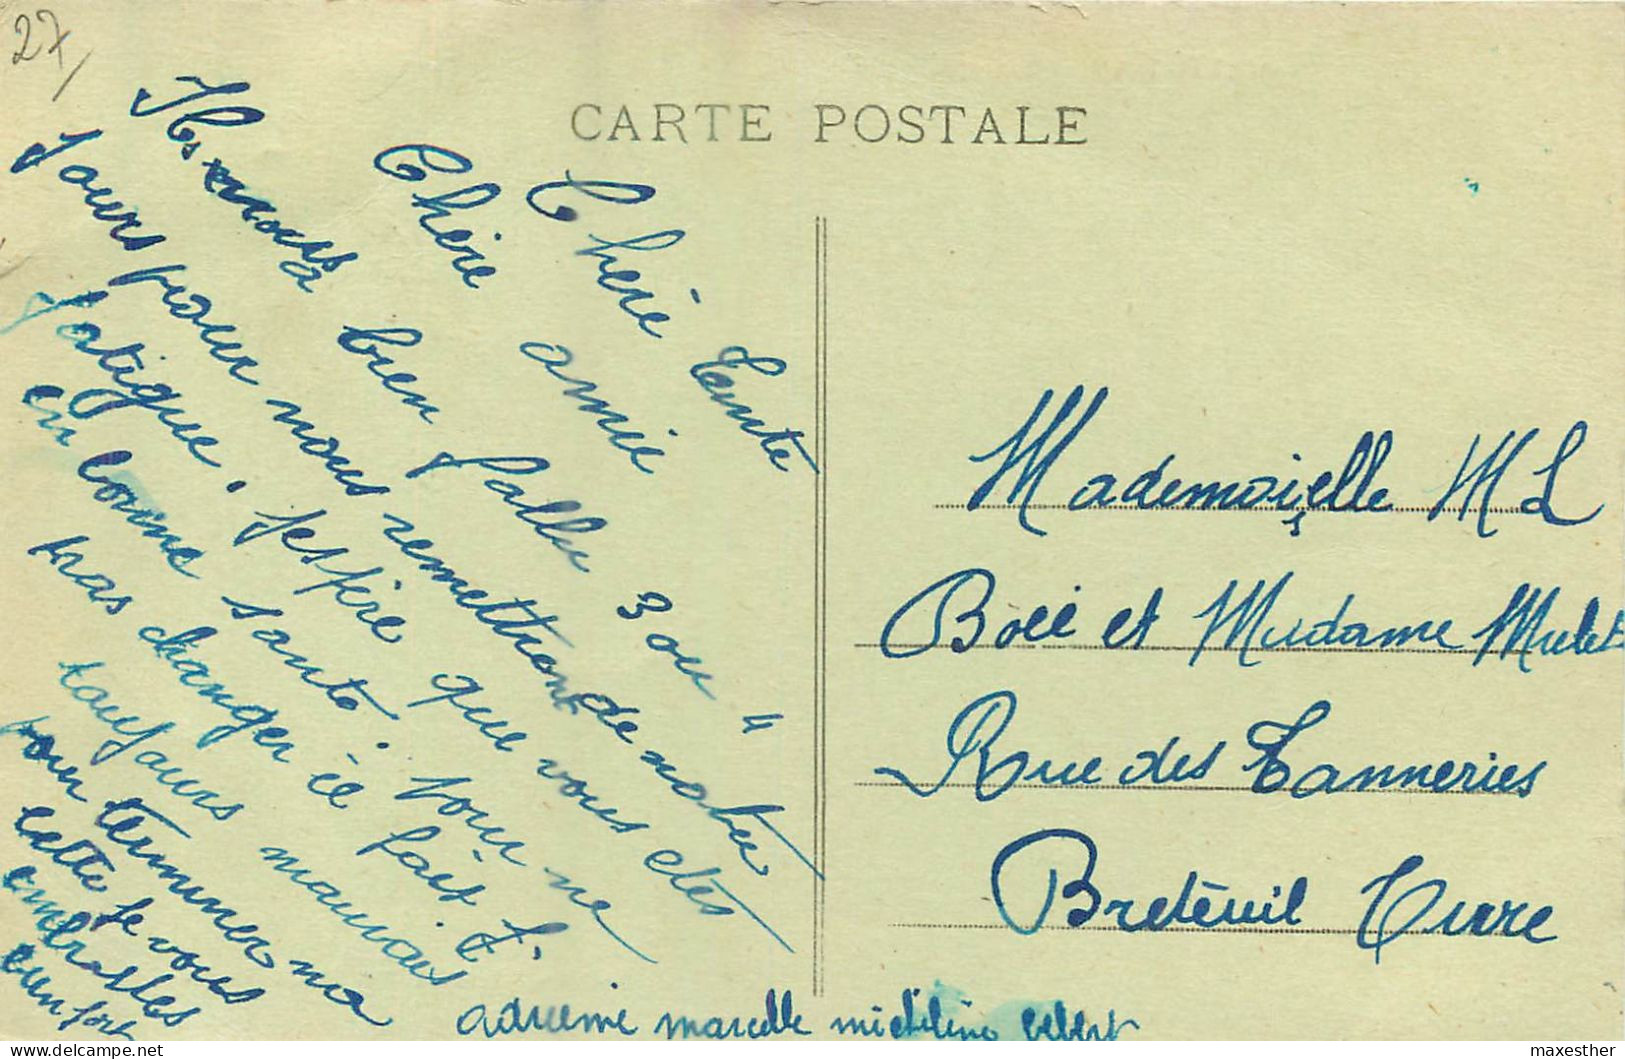 27
CARTE POSTALE
Cherè tante
Chère amie
Il nous a bien fallu 3 ou 4
Jours pour nous remettions de notre
fatigue. J'espère que vous etes
en bonne santé. pour ne
pas changer il fait t.
toujours mauvais
pour terminer ma
cette je vous
embrasses
bien fort
adrienne marcelle micheline bebert
Mademoiselle M L
Boëe et Madame Mulet
Rue des Tanneries
Breteuil Eure
maxesther